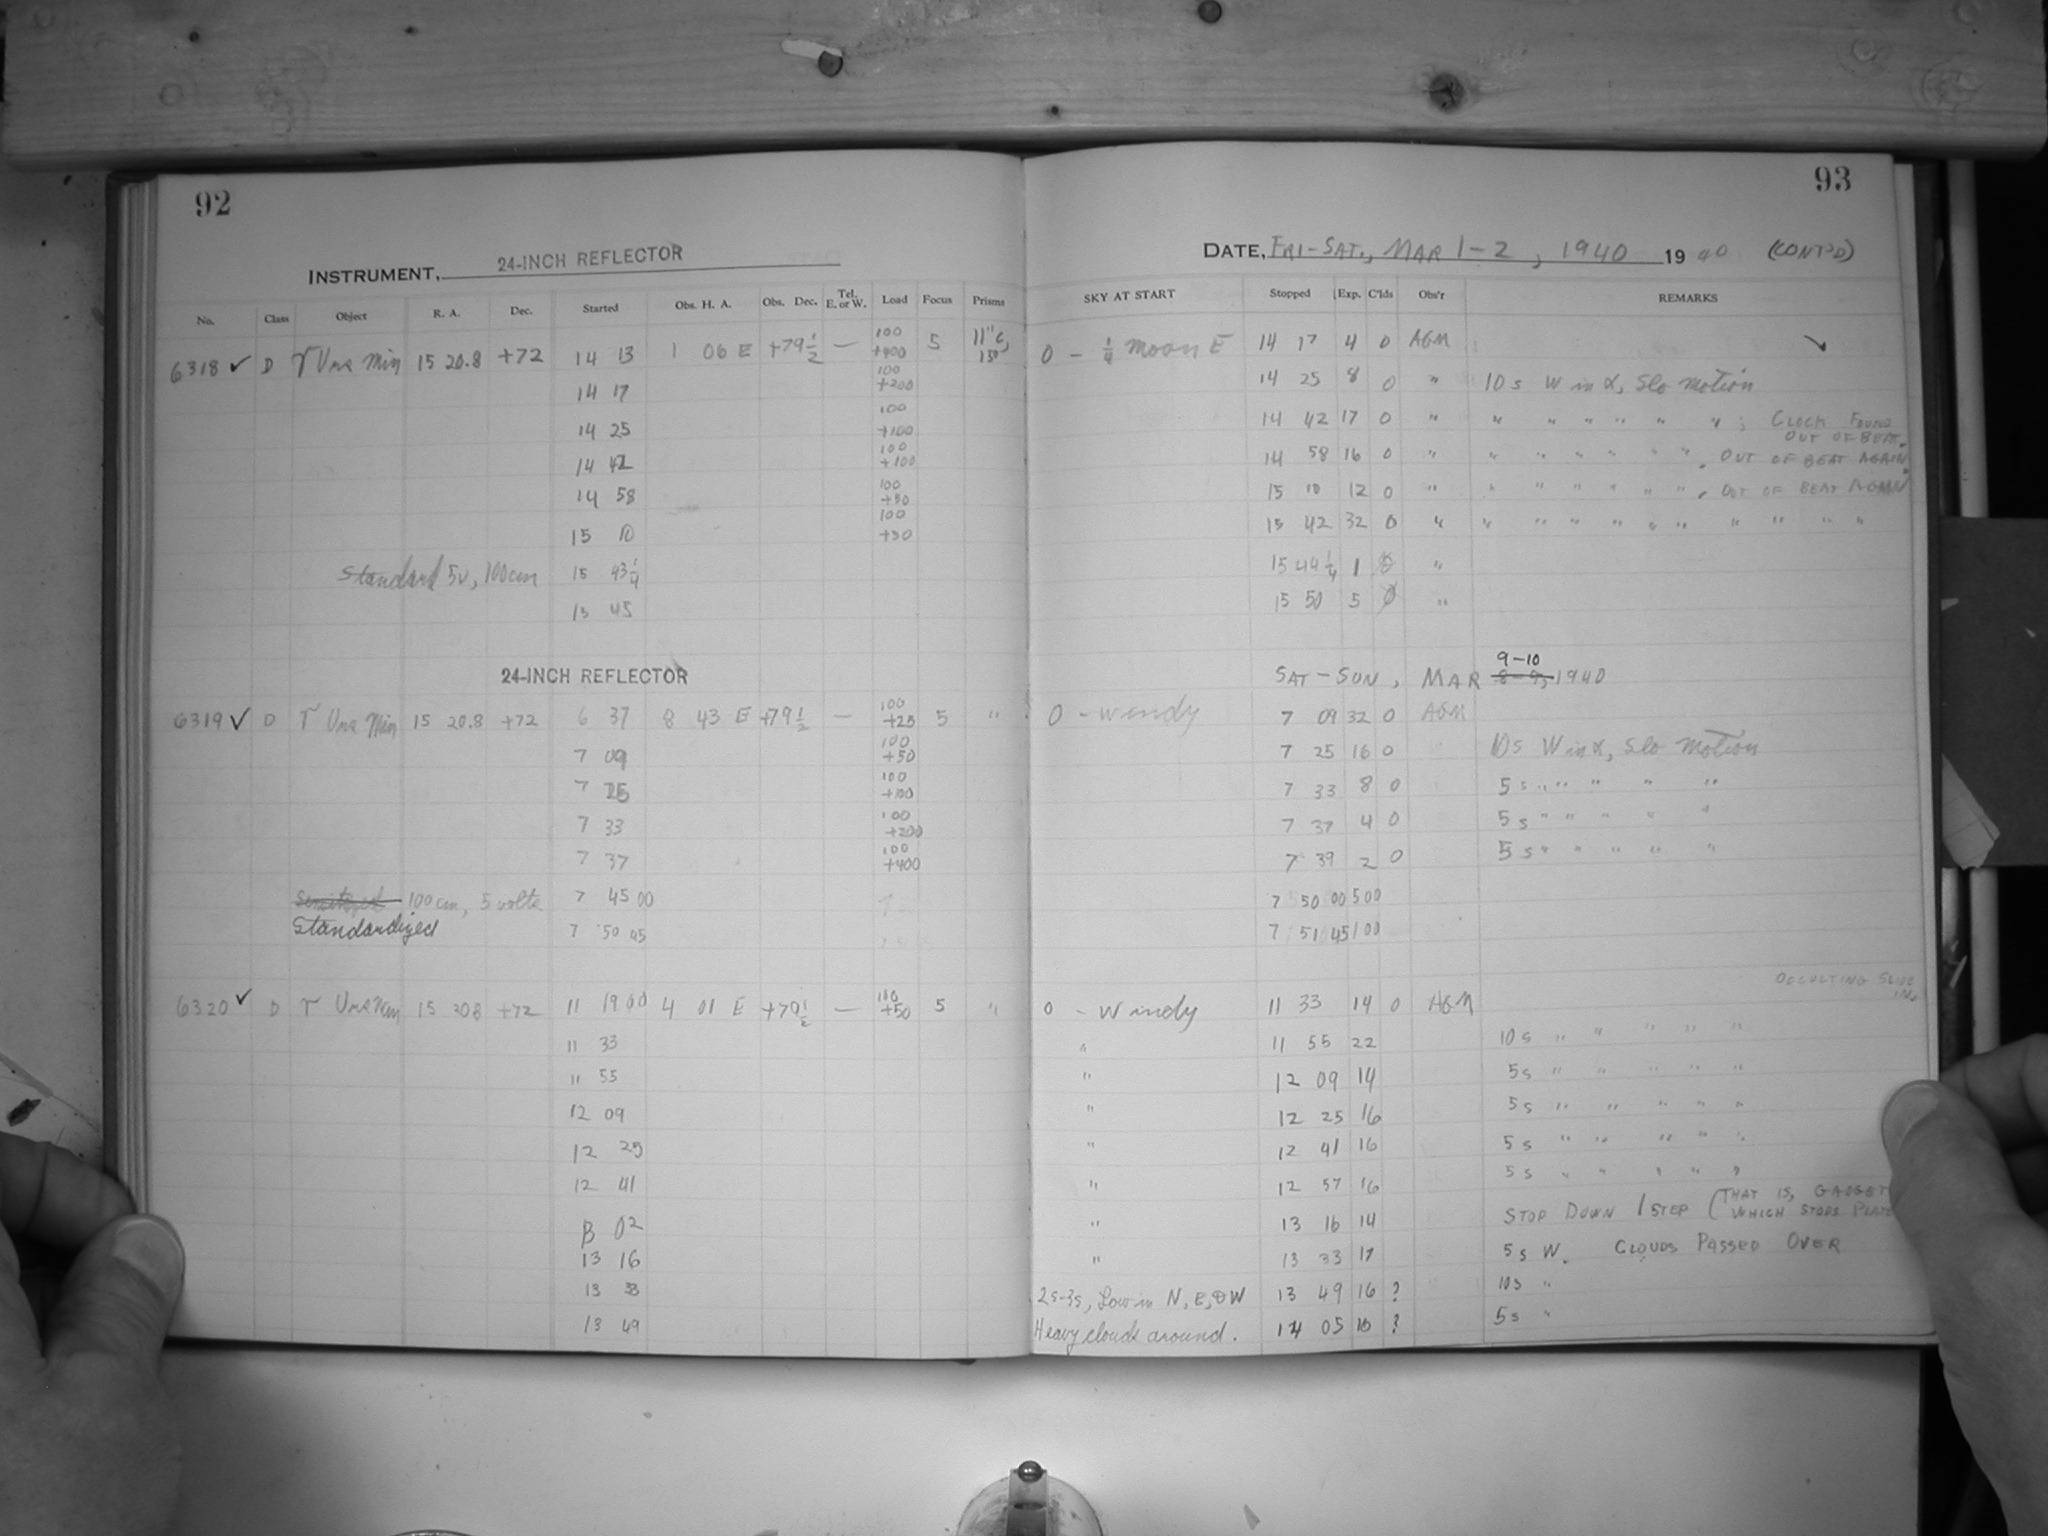 92
INSTRUMENT, 24-INCH REFLECTOR
No. Class Object R. A. Dec. Started Obs. H. A. Obs. Dec. Tel. E. or W. Load Focus Prisms
6318 ✓ D γ Urs Min 15 20.8 +72 14 13 1 06 E +79½ — 100 +400 5 11"c, 15°
14 17 100 +200
14 25 100 +100
14 42 100 +100
14 58 100 +50
15 10 100 +50
Standard 5v, 100cm 15 43¼
15 45
24-INCH REFLECTOR
6319 ✓ D γ Urs Min 15 20.8 +72 6 37 8 43 E +79½ — 100 +25 5 "
7 09 100 +50
7 25 100 +100
7 33 100 +200
7 37 100 +400
100 cm, 5 volts 7 45 00
Standardized 7 50 45
6320 ✓ D γ Urs Min 15 208 +72 11 19 00 4 01 E +79½ — 100 +50 5 "
11 33
11 55
12 09
12 25
12 41
13 02
13 16
13 33
13 49
93
DATE, FRI-SAT., MAR 1-2, 1940 19 40 (CONT'D)
SKY AT START Stopped Exp. C'lds Obs'r REMARKS
0 - ¼ moon E 14 17 4 0 AGM
14 25 8 0 " 10s W in α, Slo motion
14 42 17 0 " " " " " " " ; CLOCK FOUND OUT OF BEAT.
14 58 16 0 " " " " " " " . OUT OF BEAT AGAIN.
15 10 12 0 " " " " " " " . OUT OF BEAT AGAIN
15 42 32 0 " " " " " " " " " " "
15 44¼ 1 "
15 50 5 0 "
SAT-SUN, MAR 8-9, 9-10 1940
0 - windy 7 09 32 0 AGM
7 25 16 0 10s W in α, Slo motion
7 33 8 0 5s " " " " "
7 37 4 0 5s " " " " "
7 39 2 0 5s " " " " "
7 50 00 5 00
7 51 45 1 00
OCCULTING SLIDE IN.
0 - Windy 11 33 14 0 AGM
" 11 55 22 10s " " " " "
" 12 09 14 5s " " " " "
" 12 25 16 5s " " " " "
" 12 41 16 5s " " " " "
" 12 57 16 5s " " " " "
" 13 16 14 STOP DOWN 1 STEP (THAT IS, GADGET WHICH STOPS PLATE
" 13 33 17 5s W. CLOUDS PASSED OVER
2s-3s, Low in N, E, & W 13 49 16 ? 10s "
Heavy clouds around. 14 05 16 ? 5s "